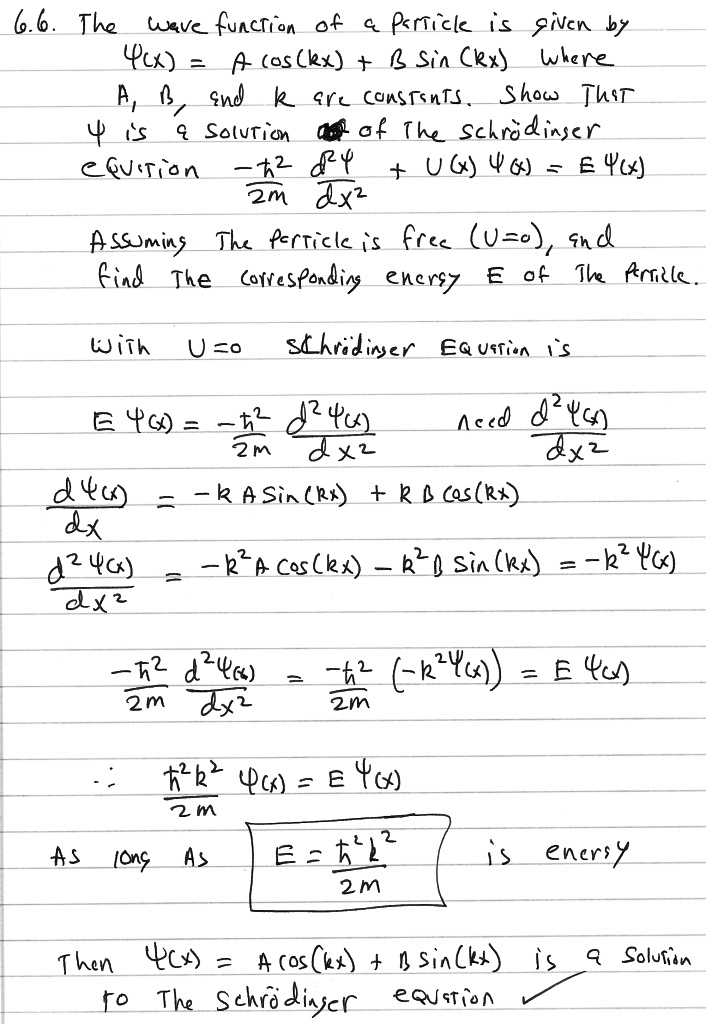 6.6. The wave function of a particle is given by
ψ(x) = A cos(kx) + B sin(kx) where
A, B, and k are constants. Show That
ψ is a solution of The schrödinger
equation -ħ²/2m d²ψ/dx² + U(x) ψ(x) = E ψ(x)
Assuming The Particle is free (U=0), and
find The corresponding energy E of The Particle.
With U=0 Schrödinger Equation is
E ψ(x) = -ħ²/2m d²ψ(x)/dx² need d²ψ(x)/dx²
dψ(x)/dx = -k A sin(kx) + k B cos(kx)
d²ψ(x)/dx² = -k² A cos(kx) - k² B sin(kx) = -k² ψ(x)
-ħ²/2m d²ψ(x)/dx² = -ħ²/2m (-k²ψ(x)) = E ψ(x)
∴ ħ²k²/2m ψ(x) = E ψ(x)
As long As E = ħ²k²/2m is energy
Then ψ(x) = A cos(kx) + B sin(kx) is a solution
to The Schrödinger equation ✓